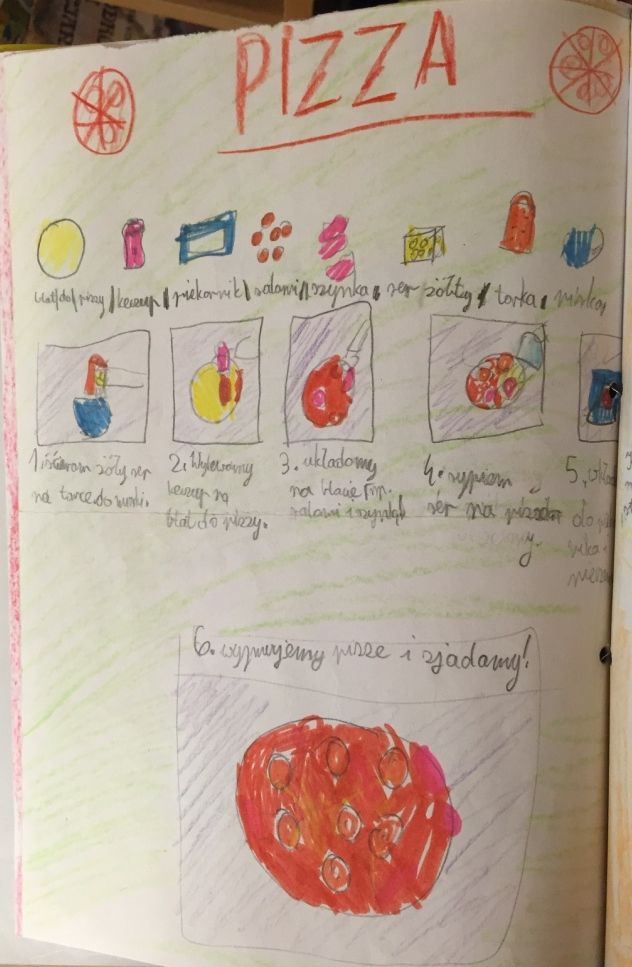 PIZZA
blat do pizzy / keczup / piekarnik / salami / szynka, ser żółty / tarka, miska,
1. ścieram żółty ser
na tarce do miski.
2. Wylewamy
keczup na
blat do pizzy.
3. układamy
na blacie
salami i szynkę
4. sypiem
ser na
5.
do
6. wyjmujemy pizze i zjadamy!